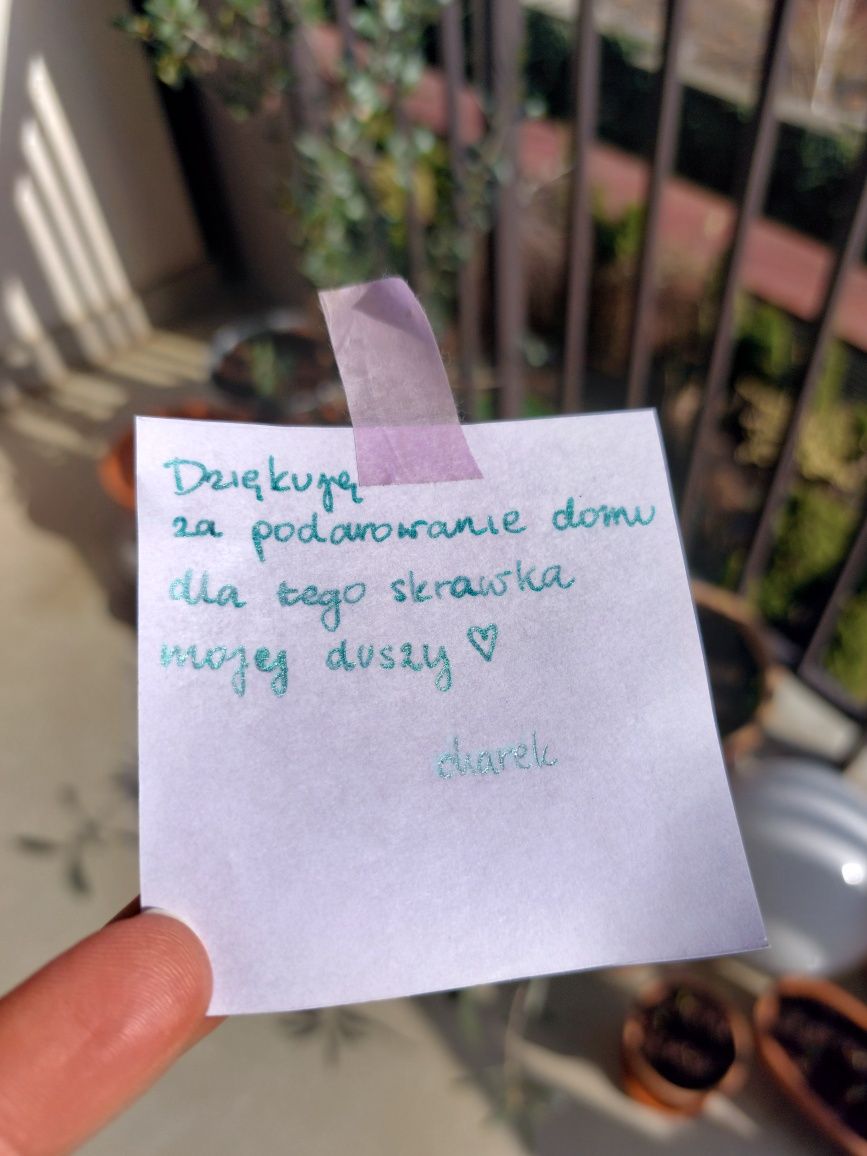 Dziękuję
za podarowanie domu
dla tego skrawka
mojej duszy ♡
charek